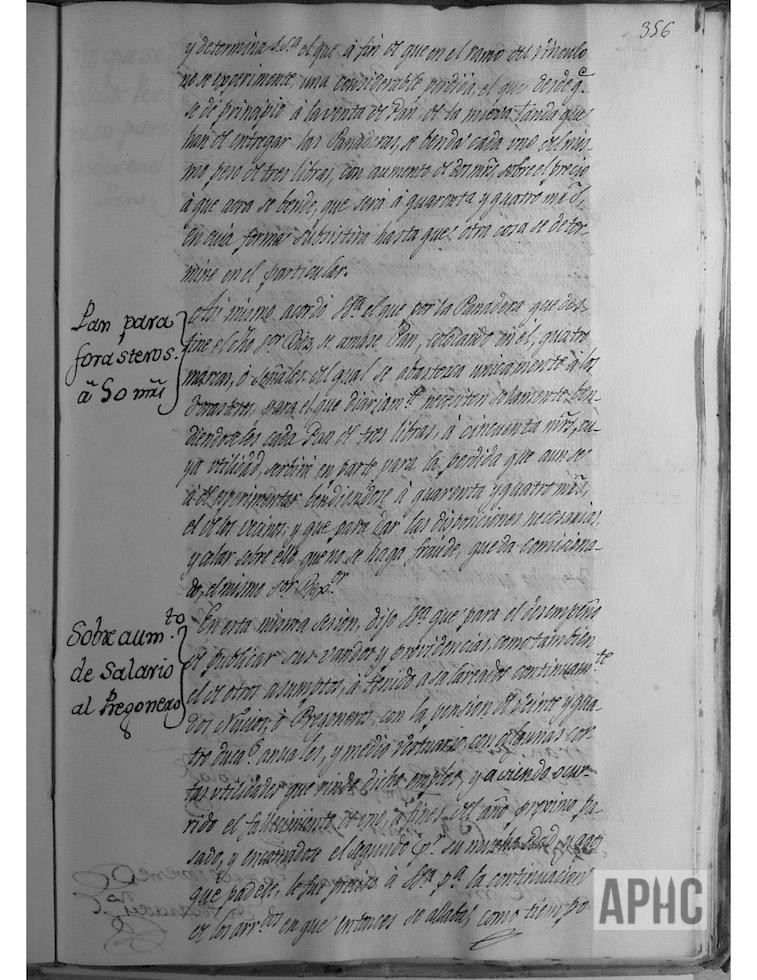 356
y determina S.Sª el que à fin de que en el ramo del vínculo
no se experimente, una considerable perdida, el que desde q.e
se dé principio à la venta de Pan de la nueva tanda que
han de entregar las Panaderas, se benda cada uno del mis-
mo peso de tres libras, con aumento de mrs, sobre el precio
à que aora se bende, que será à quarenta y quatro mrs,
en cuia forma subsistirá hasta que otra cosa se deter-
mine en el particular.
Pan para
forasteros.
à 50 mrs
Asi mismo acordó Sª el que por la Panadera que des-
tine el dho Sor Diez, se amase Pan, colocando en el, quatro
marcas, ò señales, del qual se abastezca unicamente à los
forasteros, para el que diariamte necesiten solamente, ben-
diendoseles cada Pan de tres libras, à cincuenta mrs, cu-
ya utilidad, serbirá en parte para la perdida que aun se
à de esperimentar bendiendose à quarenta y quatro mrs,
el de los vecinos; y que para dar las disposiciones necesarias,
y celar sobre ello que no se haga fraude, queda comisiona-
do, el mismo Sor
Sobre aum.to
de Salario
al Pregonero
En esta misma sesion, dijo Sª que para el desempeño
de publicar sus vandos y providencias, como tambien
el de otros asumptos, à tenido asalareados continuamte
dos Nucios, ò Pregoneros, con la pension de veinte y qua-
tro ducas anuales, y medio vestuario, con algunas cor-
tas utilidades que rinde dicho empleo, y aviendo ocur-
rido el fallecimiento de uno, à fines del año proximo pa-
sado, y encontradose el segundo pr su mucha edad, y
que padece, le fue preciso à Sª pª la continuacion
de los arrdos en que entonces se allaba, como tiempo
APHC